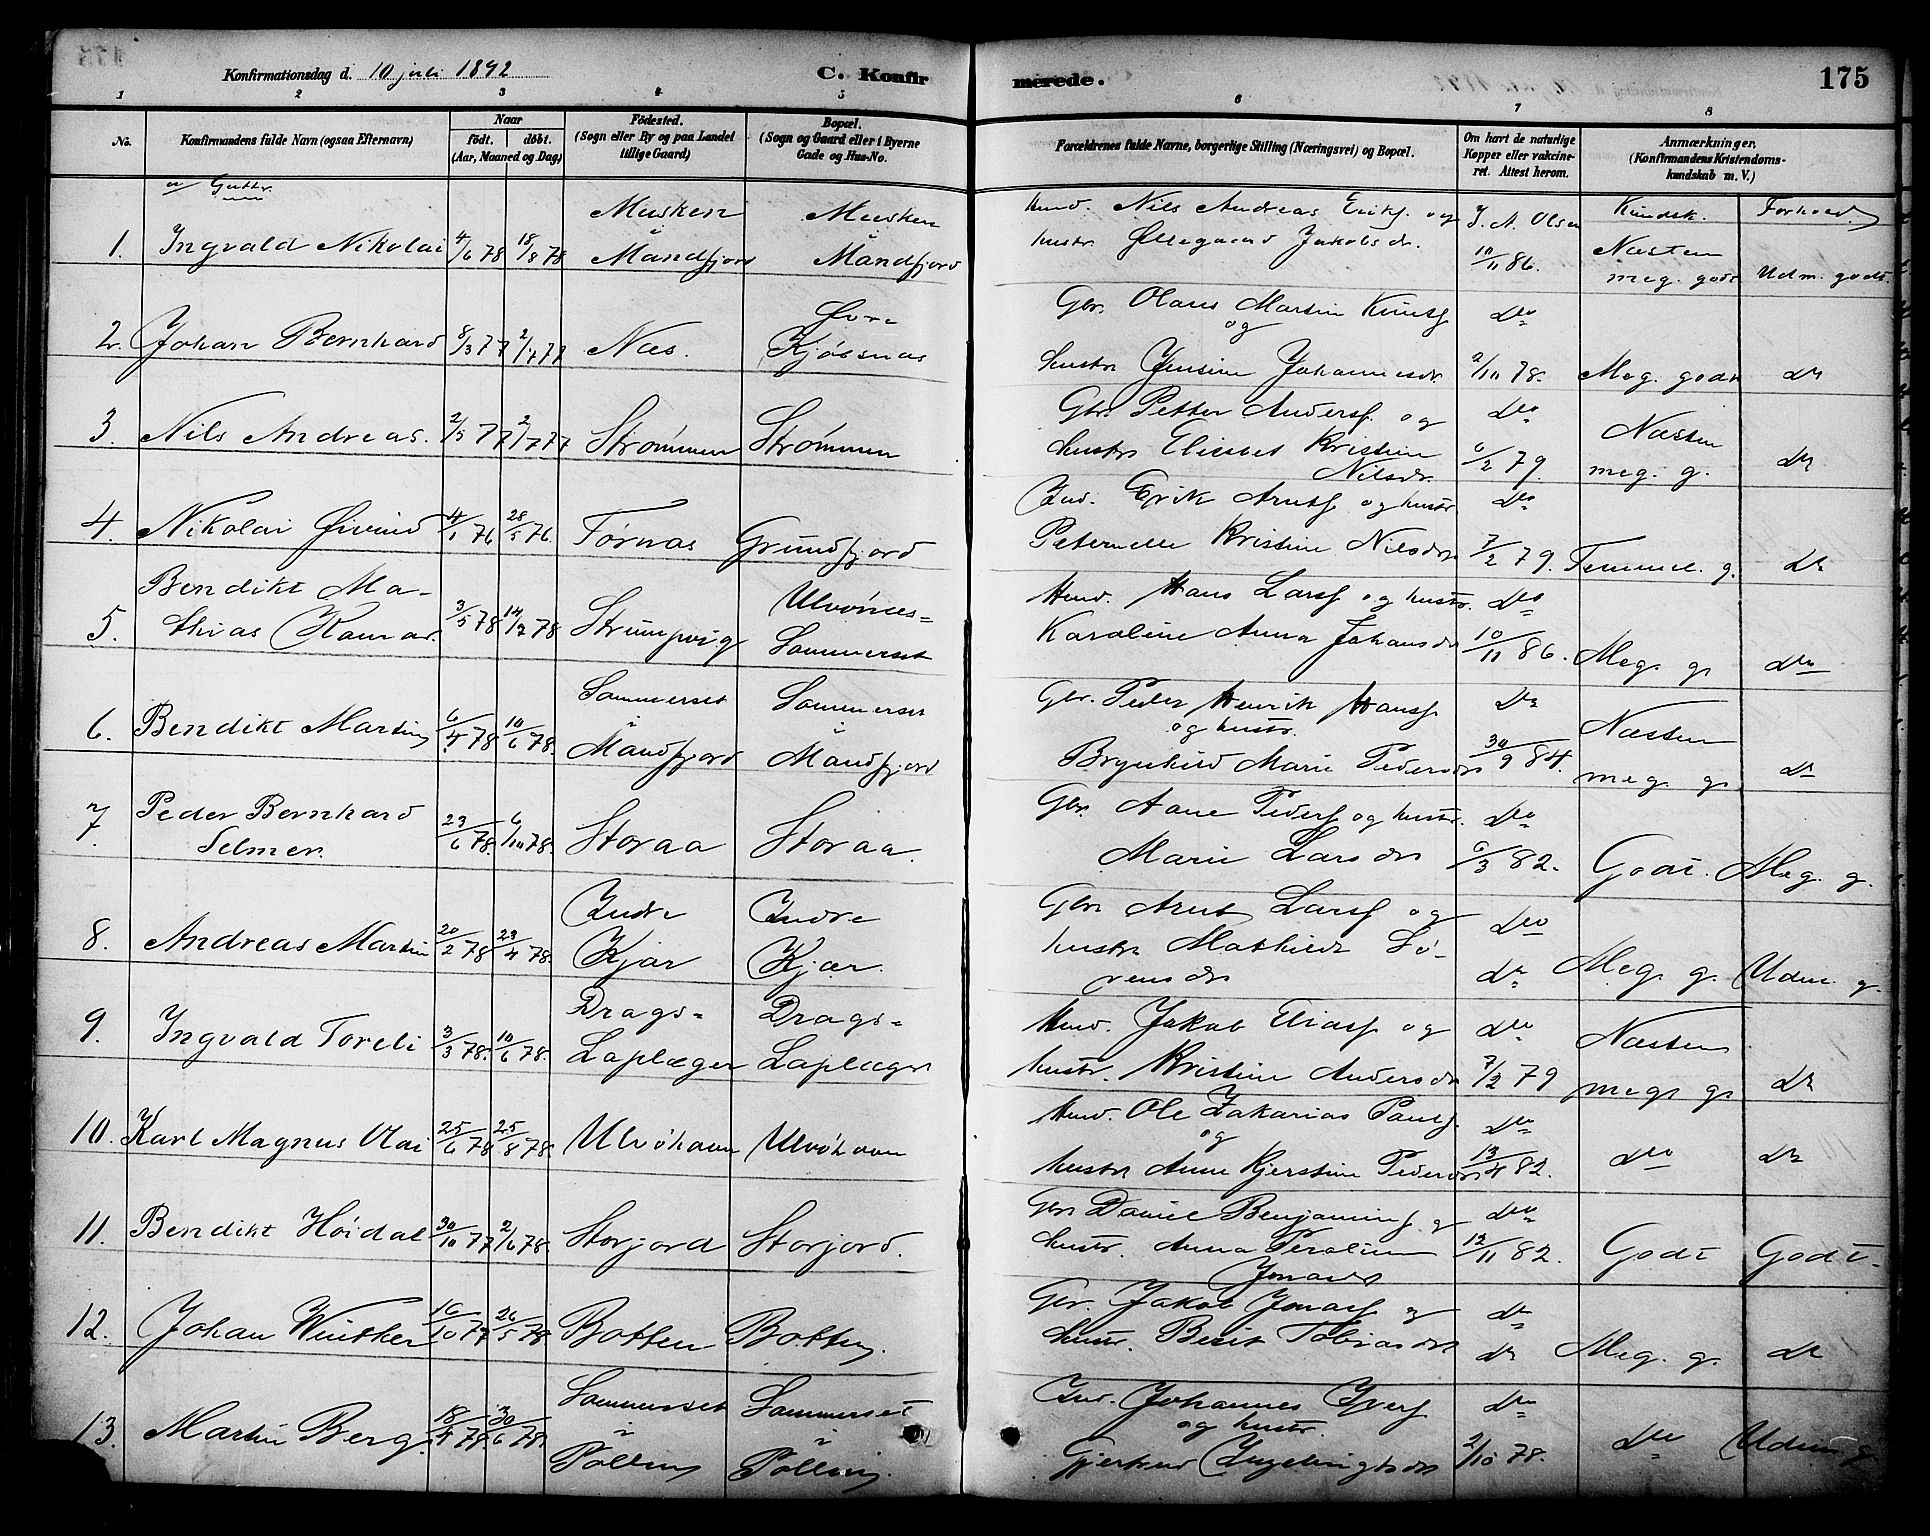 Konfirmationsdag d. 10 juli 1892
C. Konfir
merede.
175
1 2 3 4 5 6 7 8
No.
Konfirmandens fulde Navn (ogsaa Efternavn)
Naar
født. døbt.
(Aar, Maaned og Dag)
Fødested.
(Sogn eller By og paa Landet
tillige Gaard)
Bopæl.
(Sogn og Gaard eller i Byerne
Gade og Hus-No.
Forældrenes fulde Navne, borgerlige Stilling (Næringsvei) og Bopæl.
Om havt de naturlige
Kopper eller vakcine-
ret. Attest herom.
Anmærkninger.
(Konfirmandens Kristendoms-
kundskab m. V.)
a Gutter
Kundsk. Forhold
1. Ingvald Nikolai 4/6 78 18/8 78 Musken i Mandfjord Musken i Mandfjord
Nils Andreas Eriks. og
hustr Øllegaard Jakobsdr. J. A. Olsen 10/11 86. Næsten meg. godt Udm. godt.
2. Johan Bernhard 8/3 77 2/4 77 Næs. Øvre Kjøbsnæs
Gbr. Olaus Martin Knuts. og
hustr Jensine Johannesdr. do 2/10 78. Meg. godt do
3. Nils Andreas. 2/5 77 2/7 77 Strømmen Strømmen
Gbr. Petter Anders. og
hustr Elisabet Kristine Nilsdr. do 6/2 79. Næsten meg. g. do
4. Nikolai Øivind 4/1 76 28/5 76. Tørnæs Grundfjord
Ind. Erik Arnts. og hustr
Peternelle Kristine Nilsdr do 7/2 79. Temmel. g. do
5. Benedikt Ma-
thias Ramar. 3/5 78 14/7 78 Strumpvig Ulvønæs= Sommerset
Hans Lars. og hustr.
Karoline Anna Johansdr do 10/11 86. Meg. g. do
6. Bendikt Martin 6/4 78 10/6 78. Sommerset i Mandfjord Sommerset i Mandfjord
Gbr. Peder Henrik Hans.
og hustr.
Brynhild Marie Pedersdr do 30/9 84. Næsten meg. g. do
7. Peder Bernhard
Selmer. 23/6 78. 6/10 78. Storaa Storaa.
Gbr. Aane Peders. og hustr.
Marie Larsdr do 6/3 82. Godt. Meg. g.
8. Andreas Martin 20/2 78 23/4 78. Indre Kjær Indre Kjær.
Gbr Arnt Lars. og
hustr Mathilde Lo-
rensdr do do Meg. g. Udm. g.
9. Ingvald Toreli 3/3 78. 10/6 78. Drags= Laplæger Drags= Laplæger
Jakob Elias. og
hustr. Kristine Andersdr do 7/2 79 Næsten meg. g. do
10. Karl Magnus Olai 25/6 78 25/8 78. Ulvøhavn Ulvøhavn
Ole Zakarias Pauls. og
hustr Anne Kjerstine Pedersdr do 13/4 82. do do
11. Bendikt Hoidal 30/10 77 2/6 78. Storjord Storjord.
Gbr Daniel Benjamins. og
hustr. Anna Jonasdr do 12/11 82. Godt Godt.
12. Johan Winther 16/10 77 26/5 78. Botten Botten.
Gbr. Jakob Jonas. og
hustr. Berit Tobiasdr do do Meg. g. do
13. Martin Berg. 18/4 78 30/6 78. Sommerset i Pollen Sommerset i Pollen.
Ind. Johannes Ivers.
og hustr.
Gjertrud Ingebrigtsdr do 2/10 78. do Udm g